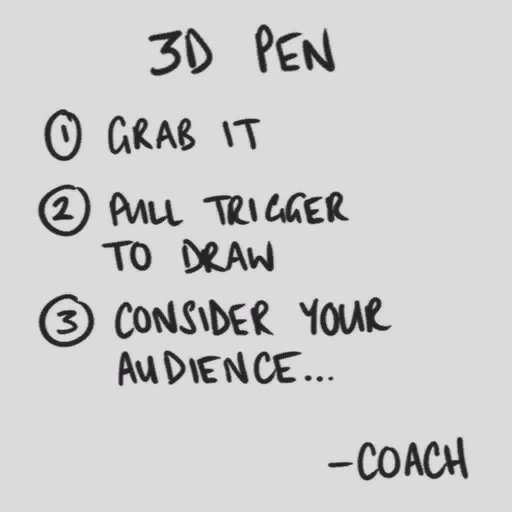 3D PEN
① GRAB IT
② PULL TRIGGER
TO DRAW
③ CONSIDER YOUR
AUDIENCE...
-COACH